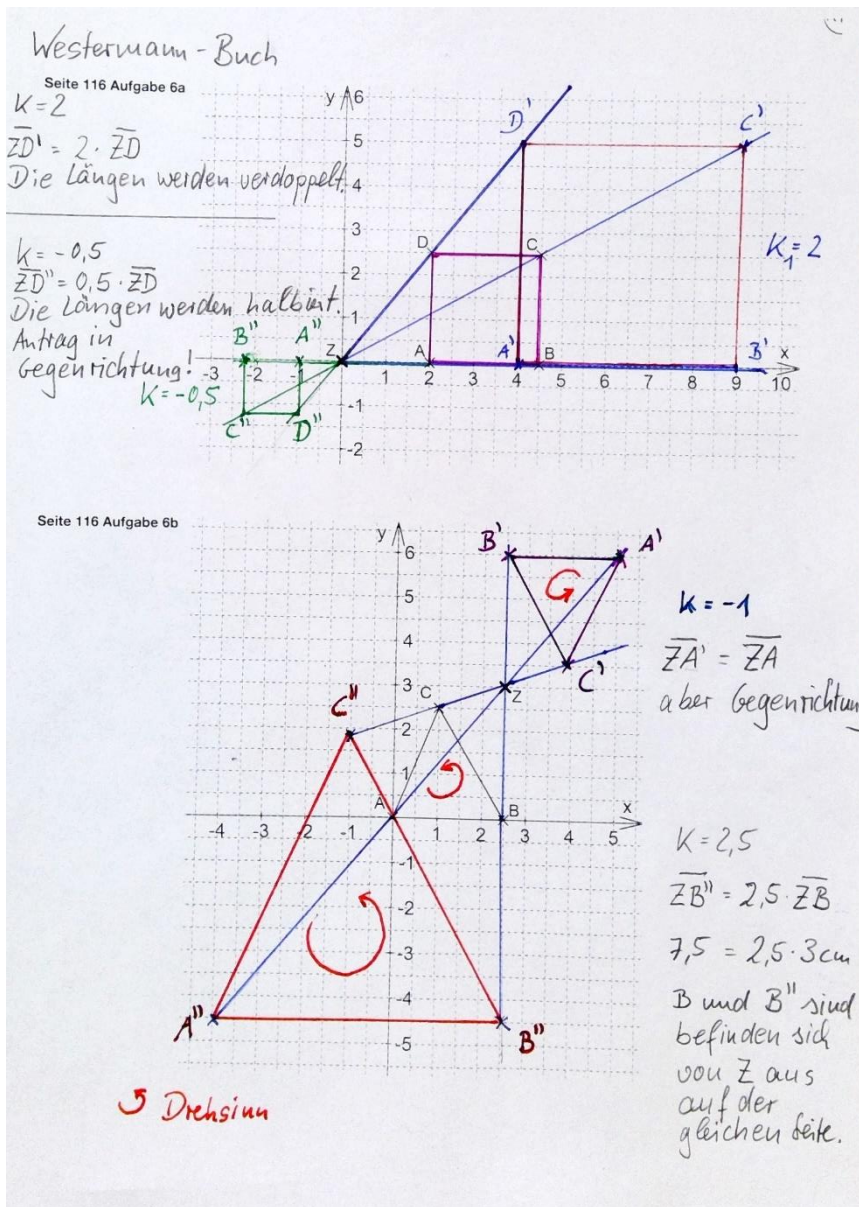 Westermann-Buch
Seite 116 Aufgabe 6a
K=2
ZD' = 2·ZD
Die Längen werden verdoppelt.
k = -0,5
ZD" = 0,5·ZD
Die Längen werden halbiert.
Antrag in
Gegenrichtung!
K=-0,5
K₁=2
y
6
5
4
3
2
1
-1
-2
x
-3 -2 -1 1 2 3 4 5 6 7 8 9 10
D' C'
D C
B" A" Z A A' B B'
C" D"
Seite 116 Aufgabe 6b
y
6
5
4
3
2
1
-1
-2
-3
-4
-5
x
-4 -3 -2 -1 1 2 3 4 5
B' A'
C'
Z
C" C
A B
A" B"
K = -1
ZA' = ZA
aber Gegenrichtun
K = 2,5
ZB" = 2,5·ZB
7,5 = 2,5·3cm
B und B" sind
befinden sich
von Z aus
auf der
gleichen Seite.
Drehsinn